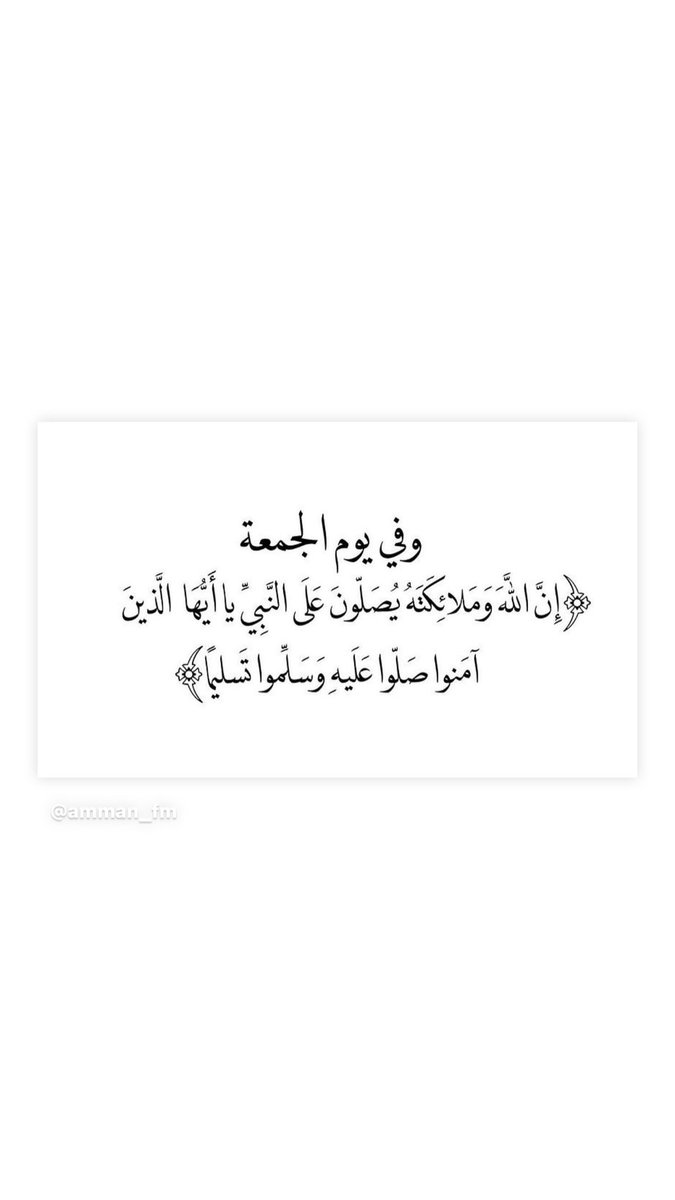 وفي يوم الجمعة
﴿إِنَّ اللَّهَ وَمَلائِكَتَهُ يُصَلّونَ عَلَى النَّبِيِّ يا أَيُّهَا الَّذينَ
آمَنوا صَلّوا عَلَيهِ وَسَلِّموا تَسليمًا﴾
@amman_fm